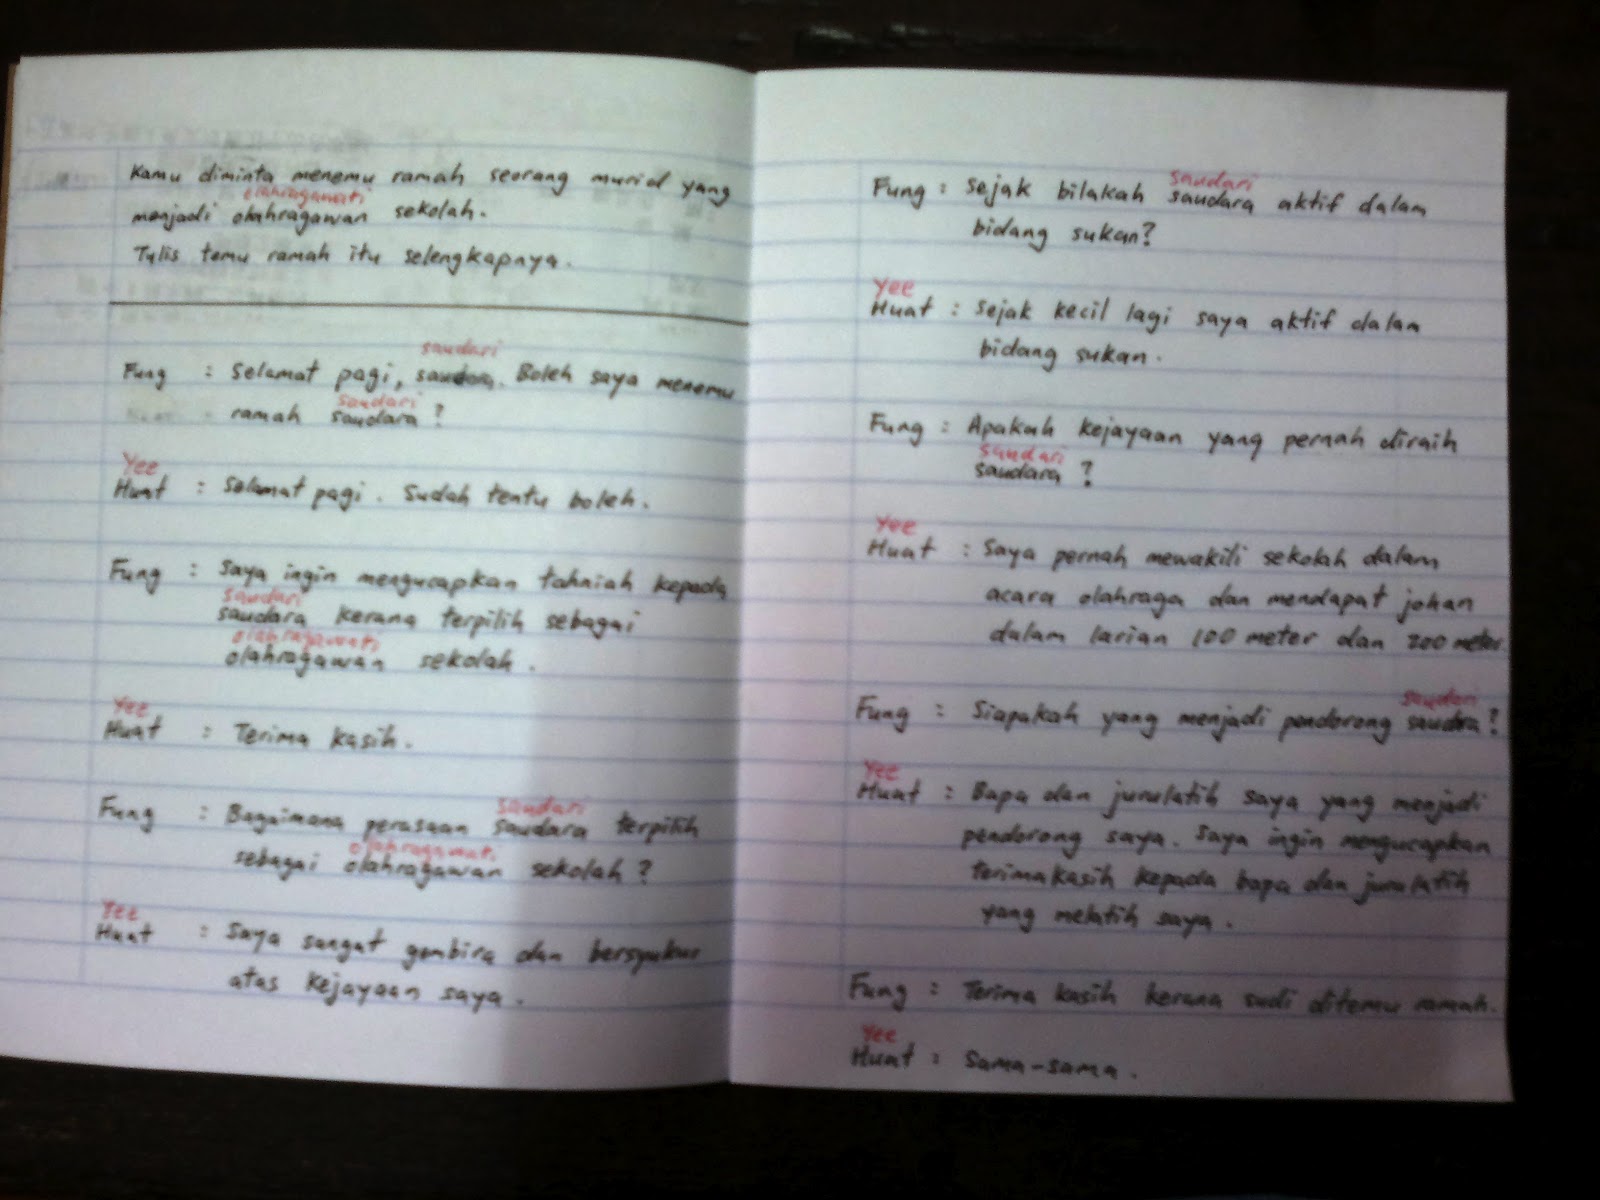 Kamu diminta menemu ramah seorang murid yang
olahragawati
menjadi olahragawan sekolah.
Tulis temu ramah itu selengkapnya.
saudari
Fung : Selamat pagi, saudara. Boleh saya menemu
saudari
ramah saudara ?
Yee
Huat : Selamat pagi. Sudah tentu boleh.
Fung : Saya ingin mengucapkan tahniah kepada
saudari
saudara kerana terpilih sebagai
olahragawati
olahragawan sekolah.
Yee
Huat : Terima kasih.
saudari
Fung : Bagaimana perasaan saudara terpilih
olahragawati
sebagai olahragawan sekolah ?
Yee
Huat : Saya sangat gembira dan bersyukur
atas kejayaan saya.
saudari
Fung : Sejak bilakah saudara aktif dalam
bidang sukan?
Yee
Huat : Sejak kecil lagi saya aktif dalam
bidang sukan.
Fung : Apakah kejayaan yang pernah diraih
saudari
saudara ?
Yee
Huat : Saya pernah mewakili sekolah dalam
acara olahraga dan mendapat johan
dalam larian 100 meter dan 200 meter.
saudari
Fung : Siapakah yang menjadi pendorong saudara?
Yee
Huat : Bapa dan jurulatih saya yang menjadi
pendorong saya. Saya ingin mengucapkan
terima kasih kepada bapa dan jurulatih
yang melatih saya.
Fung : Terima kasih kerana sudi ditemu ramah.
Yee
Huat : Sama-sama.